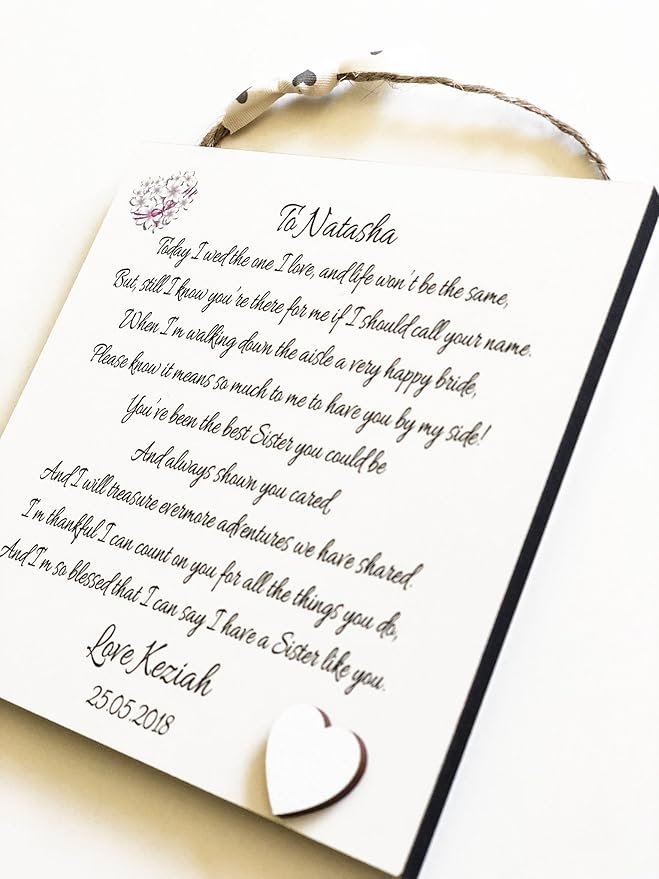 To Natasha
Today I wed the one I love, and life won't be the same,
But, still I know you're there for me if I should call your name.
When I'm walking down the aisle a very happy bride,
Please know it means so much to me to have you by my side!
You've been the best Sister you could be
And always shown you cared
And I will treasure evermore adventures we have shared.
I'm thankful I can count on you for all the things you do,
And I'm so blessed that I can say I have a Sister like you.
Love Keziah
25.05.2018